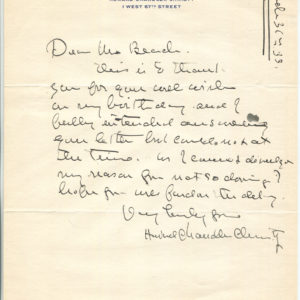 HOWARD CHANDLER CHRISTY
1 WEST 67TH STREET
Dear Mr Beach.
This is to thank
you for your good wishes
on my birthday and I
fully intended answering
your letter but could not at
the time. as I cannot
my reason for not so doing I
hope you will pardon the delay.
Very truly yours
Howard Chandler Christy